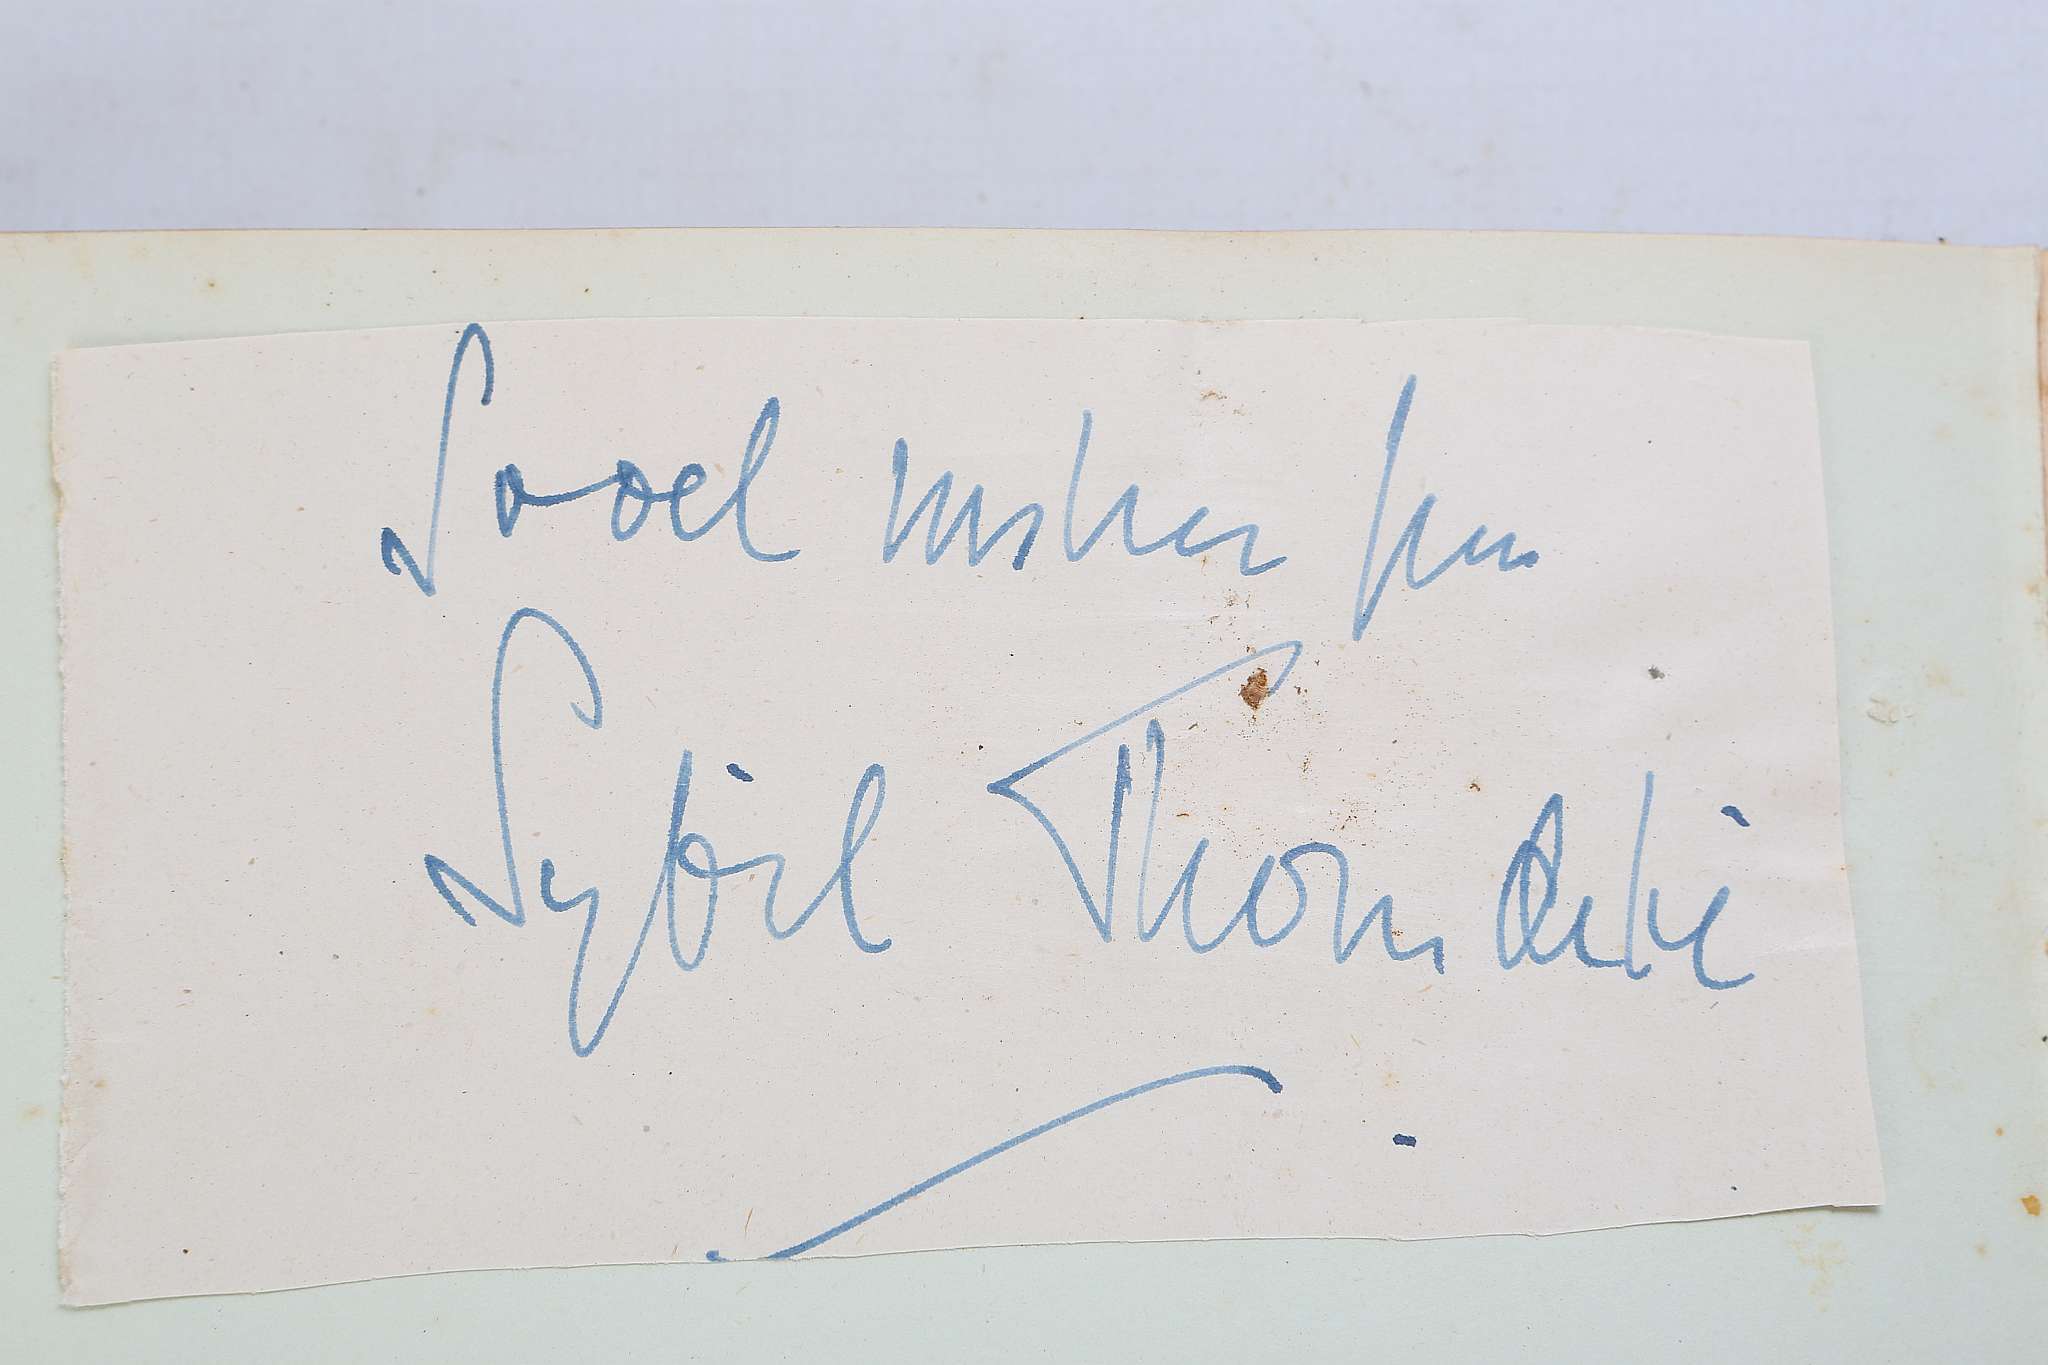 Good wishes from
Sybil Thorndike